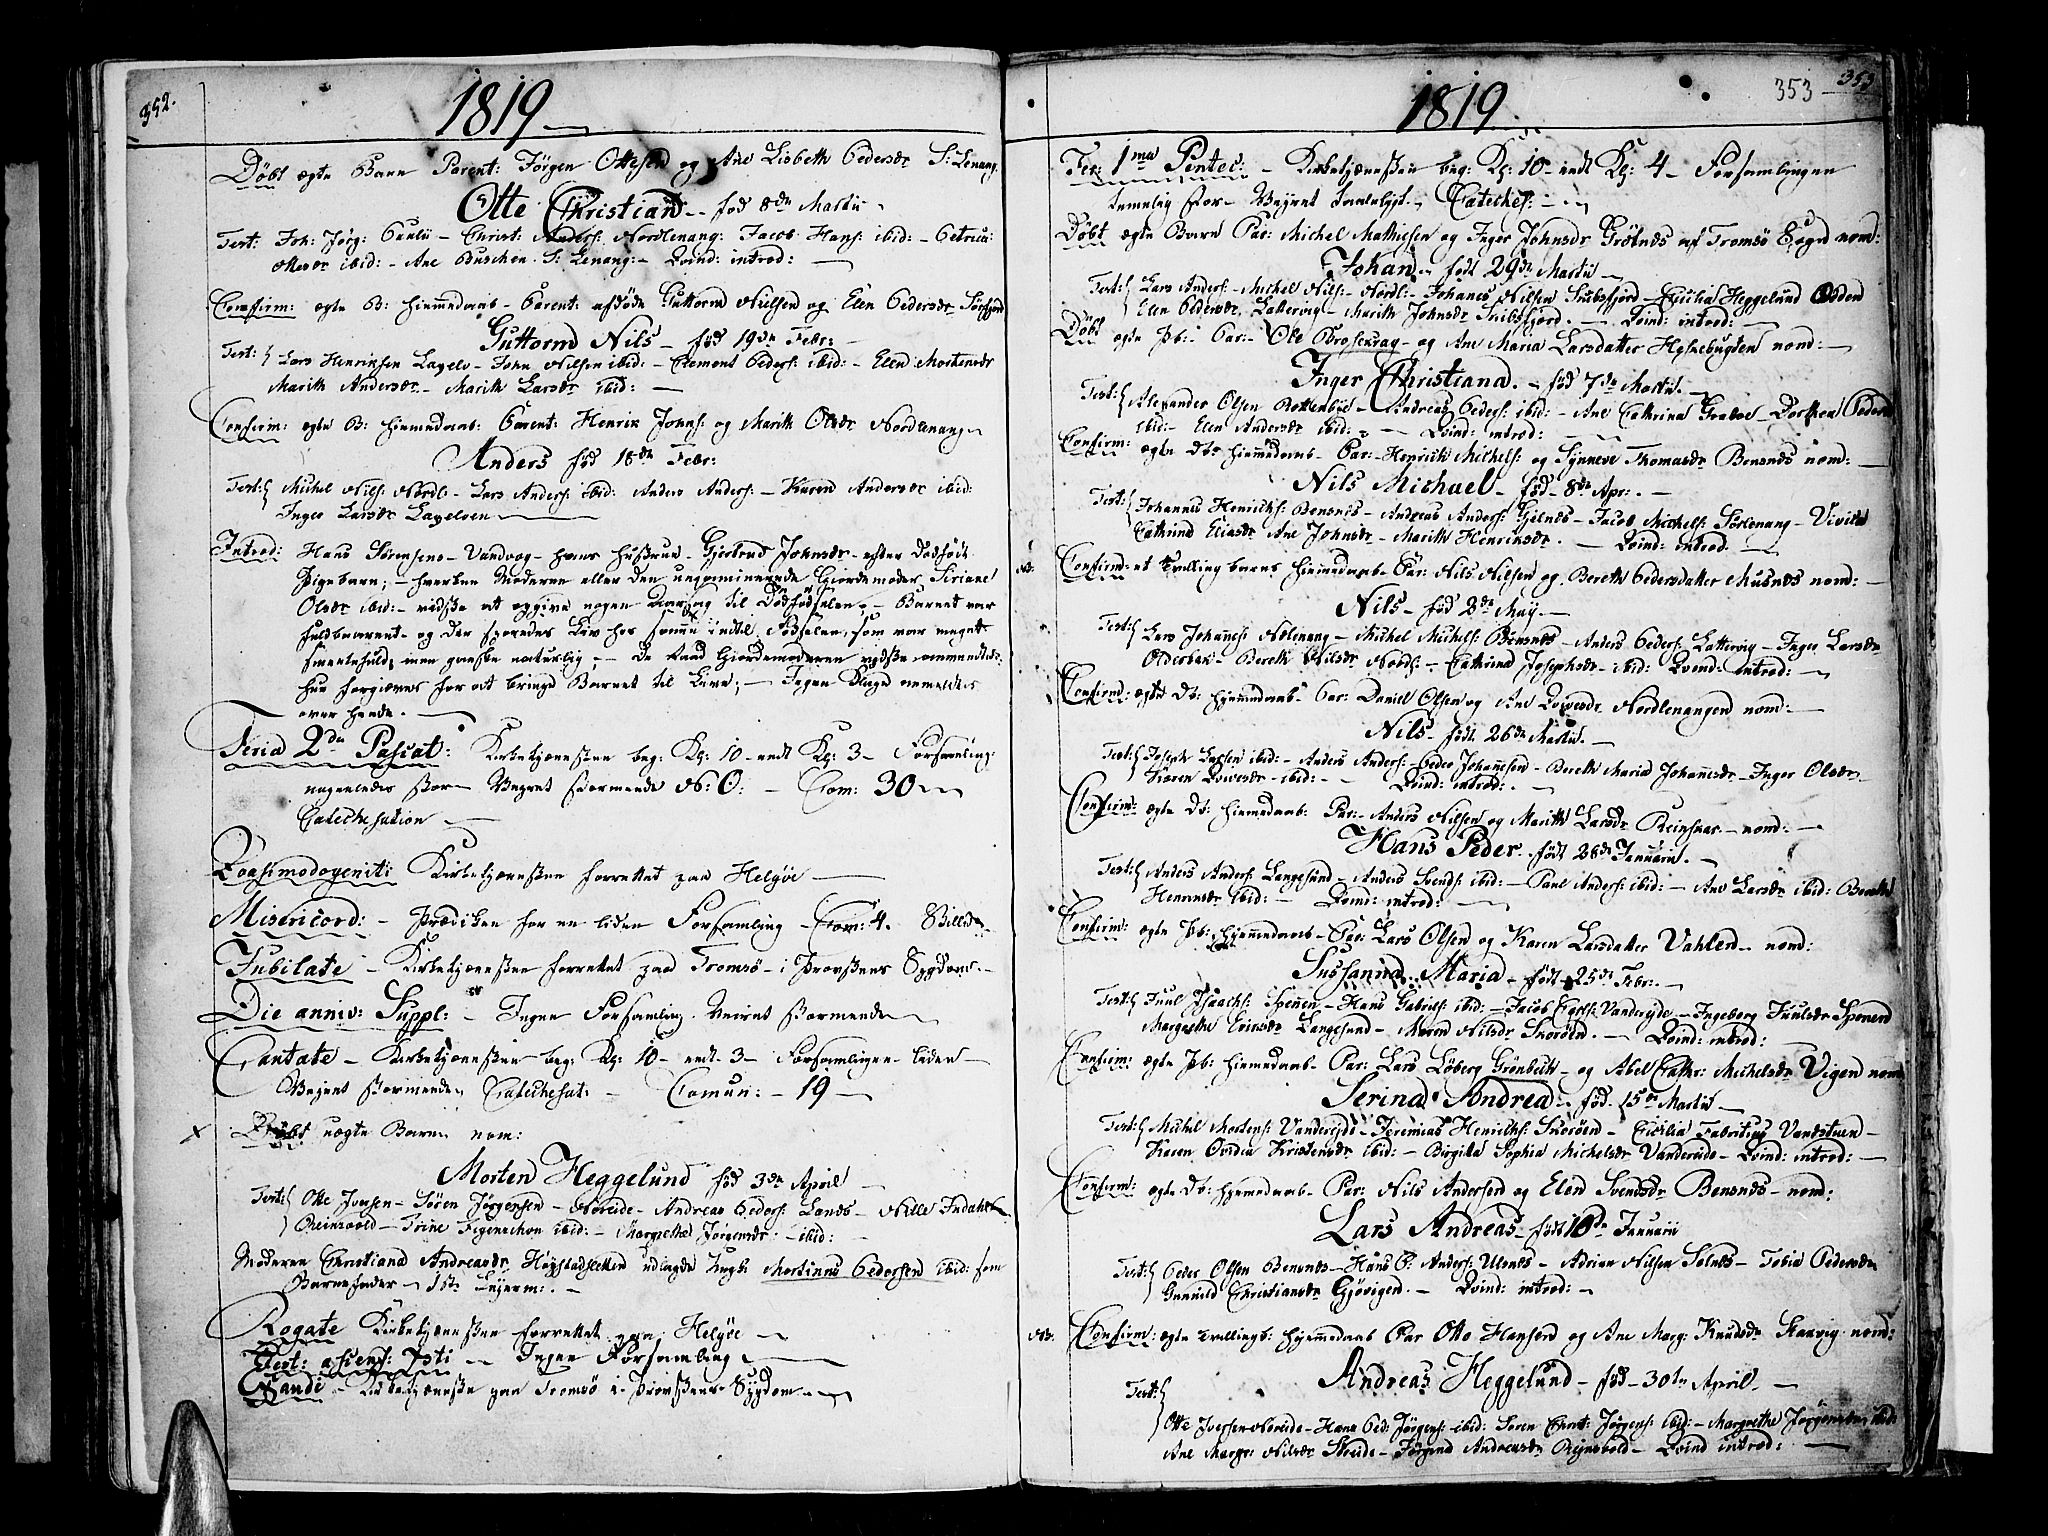 352.
1819
Döbt ægte Barn Parent: Jörgen Ottesen og Ane Lisbeth Pedersdr S: Lenang.
Otte Christian - föd 8de Martii
Test: Joh: Jörg: Paulii - Christ: Anders: Nordlenang: Jacob Hans: ibid: - Petrica
Ottesdr ibid: - Ane Buschen S: Lenang: - Qvind: introd:
Confirm: ægte B: hiemmedaab - Parent: afdöde Guttorm Nielsen og Elen Pedersdr Sörfjord
Guttorm Nils - föd 19de Febr:
Test: Lars Henriksen Lagelv - John Nilsen ibid: - Clement Peders: ibid: - Elen Mortensdr
Marith Andersdr - Marith Larsdr ibid:
Confirm: ægte B: hiemmedaab: Parent: Henrik Johns: og Marith Olsdr Nordlenang
Anders föd 18de Febr:
Test: Michel Nils: Nordl: - Lars Anders: ibid: Anders Anders: - Karen Andersdr ibid:
Inger Larsdr Lagelven
Introd: Hans Sörensens - Vandvog - hans Hustrue - Gjertrud Johnsdr - efter Dödfödt
Pigebarn; - hverken Moderen eller den uexaminerede Giordemoder Siriane
Olsdr ibid: - vidste at opgive nogen Aarsag til Dödfödselen; - Barnet var
fuldbaarent - og der sporedes Liv hos samme indtil Födselen, som var meget
smertefuld, men ganske naturlig; - De Raad Giordemoderen vidste anvendtes
hun forgieves for at bringe Barnet til Live; - Ingen Klage anmeldtes
over hende.
Feria 2da Pascat: Kirketjenesten beg: Kl: 10 - endt Kl: 3 - Forsamling:
nogenledes stor - Vejret stormende N: O: - Com: 30
Catechisation
Qvasimodogenit: Kirketjenesten forrettet paa Helgöe
Misericord: - Prædiken for en liden Forsamling - Com: 4.
Jubilate - Kirketjenesten forrettet paa Tromsö - i Provstens Sygdom
Die anniv: Suppl: - Ingen Forsamling. Veiret stormende
Cantate - Kirketjenesten beg: Kl: 10 - endt 3 - Forsamlingen liden
Vejret stormende Catechisat: - Comun: - 19
x Döbt uægte Barn nom:
Morten Heggelund föd 3de April
Test: Otte Iversen - Sören Jörgensen - Noreide - Andreas Peders: Lands - Nille
Reinsvold - Trine Figenschou ibid: - Margrethe Jörgensdr - ibid:
Moderen Christiana Andreasdr Höystadsletten udlagde Ungk: Mortinus Pedersen ibid: som
Barnefader 1ste Lejerm:
Rogate Kirketjenesten forrettet paa Helgöe
Fest: ascens: Xsti - Ingen Forsamling
Exaudi - Kirketjeneste paa Tromsö i Provstens Sygdom
353 353
1819.
Fer: 1ma Pentec: - Kirketjenesten beg: Kl: 10 - endt Kl: 4 - Forsamlingen
temmelig stor - Vejret Catechis:
Döbt ægte Barn Par: Michel Mathisen og Inger Johnsdr Grötnes af Tromsö Sogn nom:
Johan - födt 29de Martii
Test: Lars Anders: - Michel Nils: - Nordl: - Johanes Nilsen Skibsfjord - Cicilia Heggelund
Elen Pedersdr Lattervig - Marith Johnsdr Skibsfjord. - Qvind: introd:
Döbt ægte Pb: - Par: - Ole Brosekrag - og Ane Maria Larsdatter nom:
Inger Christiana. - föd 7de Martii.
Test: Alexander Olsen Rottenbye - Andreas Peders: ibid: - Ane Cathrina Grabve - Dorthea Peders
ibid: - Elen Andersdr ibid: - Qvind: introd:
Confirm: ægte Db: hiemmedaab - Par: - Henrich Michels: og Synneve Thomasdr Bensnes nom:
Nils Michael - föd - 8de Apr:
Test: Johannes Henrichs: Bensnes - Andreas Anders: Gjelnes - Jacob Michels: Sörlenang - Vivike
Cathrine Eliasdr Ane Johnsdr - Marith Henriksdr. - Qvind: introd.
NB: Confirm: et Tvilling barns hiemmedaab - Par: Nils Nilsen og Bereth Pedersdatter Musnes nom:
Nils - föd 2de May
Test: Lars Johanes: Nolenang - Michel Michels: Bensnes - Anders Peders: Lattervig - Inger Larsdr
Olderbak - Bereth Nilsdr Nords: - Cathrina Josephsdr - ibid: Qvind: introd:
Confirm: ægte Db: hiemmedaab - Par: Daniel Olsen og Ane Nordlenangen nom:
Nils - födt 26de Martii.
Test: Joseph Larsen ibid: - Anders Anders: - Peder Johannesen - Bereth Maria Johannesdr - Inger Olsdr
Sören ibid: - Qvind: introd:
Confirm: ægte Db: hiemmedaab: Par: - Anders Nilsen og Marith Larsdr Reinsnes - nom:
Hans Peder - födt 28de Januarii.
Test: Anders Anders: Langesund - Anders Svends: ibid: - Paul Anders: ibid: - Ane Larsdr ibid: Bereth
Henriksdr ibid: - Qvind: introd:
Confirm: ægte Pb: hiemmedaab - Par: Lars Olsen og Karen Larsdatter Vahlen - nom:
Sussanna Maria - födt 25de Febr:
Test: Juul Isaachs: Spenen - Hans Gabriels: ibid: - Jacob Carls: Vandeyde - Ingeborg Juulsdr Spenen
Margrethe Ericsdr Langesund - Maren Nilsdr Skoröen. - Qvind: introd:
Confirm: ægte Pb: hiemmedaab - Par: Lars Löberg Grönbech - og Abel Cathr: Michelsdr Vigen nom
Serina Andrea - föd. 15de Martii
Test: Michel Mortens: Vandereyde - Jeremias Henrichs: Skoröen - Cicilia Fabritius Vandstuen -
Karen Ovidia Kristensdr ibid: - Birgitta Sophia Michelsdr Vandereide - Qvind: introd:
Confirm: ægte Db: hjemmedaab - Par: Nils Andersen og Elen Svendsdr Bensnes - nom:
Lars Andreas - födt 10de Januarii
Test: Peder Olsen Bensnes - Hans P: Anders: Ulsnes - Adrian Nilsen Solnes - Tobia Pedersdr
Gunnild Christiansdr Gjövigen. - Qvind: introd:
NB: Confirm: ægte Tvillingb: hjemmedaab Par Otte Hansen og Ane Marg: Knudsdr Skaavig nom:
Andreas Heggelund - föd - 30te April.
Test:
Otte Iversen Noreide - Hans Ped: Jörgens: ibid: Sören Christ: Jörgens: ibid: - Margrethe Jörgensdr ibid:
Ane Margr: Nilsdr Skreide - Jörgine Andreasdr Reinsvold - Qvind introd: